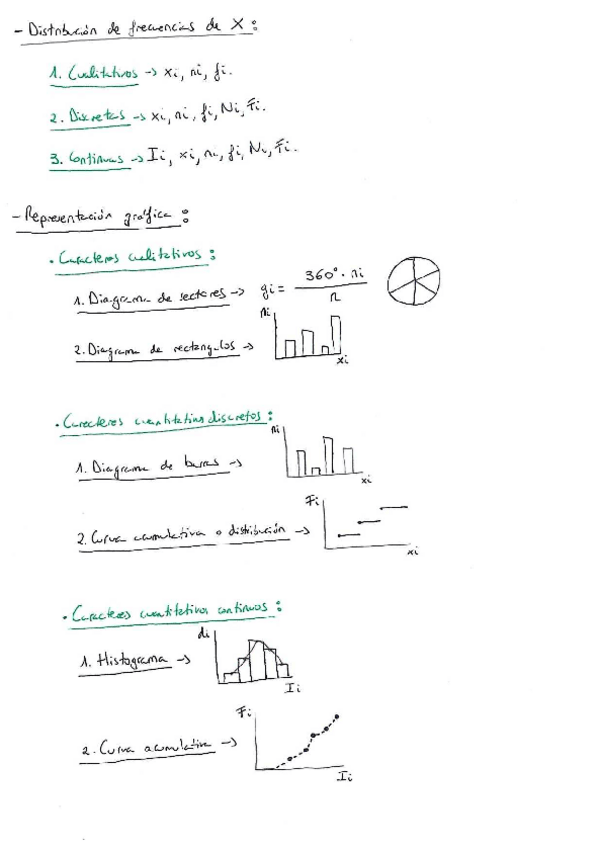 - Distribución de frecuencias de X :
1. Cualitativos -> xi, ni, fi.
2. Discretas -> xi, ni, fi, Ni, Fi.
3. Continuas -> Ii, xi, ni, fi, Ni, Fi.
- Representación gráfica :
· Caracteres cualitativos :
1. Diagrama de sectores -> gi = 360° · ni / n
ni
2. Diagrama de rectangulos ->
xi
· Caracteres cuantitativos discretos :
ni
1. Diagrama de barras ->
xi
Fi
2. Curva acumulativa o distribución ->
xi
· Caracteres cuantitativos continuos :
di
1. Histograma ->
Ii
Fi
2. Curva acumulativa ->
Ii